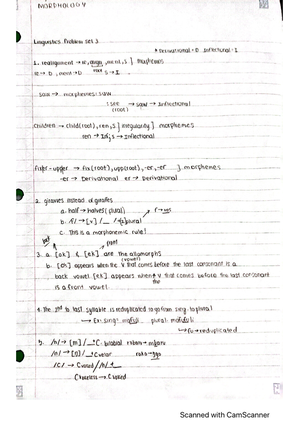 MORPHOLOGY
Linguistics Problem Set 3
* Derivational = D Inflectional = I
1. realignment → re, align, ment, s ] morphemes
re → D , ment → D root s → I
saw → morphemes: saw
(see → saw → Inflectional
(root)
children → child (root), ren, s ] irregularity ] morphemes
ren → I, s → Inflectional
fixer - upper → fix (root), upp (root), -er, -er ] morphemes
-er → Derivational er → Derivational
2. giraves instead of girafes
a. half → halves (plural) f → ves
b. /f/ → [v] / plural
c. This is a morphemic rule!
back front
3. a. [ak] & [ek] are the allomorphs
(vowel)
b. [ak] appears when the V that comes before the last consonant is a
back vowel. [ek] appears when the V that comes before the last consonant
is a front vowel.
4. The 2nd to last syllable is reduplicated to go from sing. to plural
→ Ex: sing: mafuli plural: mafufuli
→ fu → reduplicated
5. /n/ → [m] / C bilabial
/n/ → [ŋ] / C velar
/C/ → C voiced /n/
C voiceless → C voiced
Scanned with CamScanner